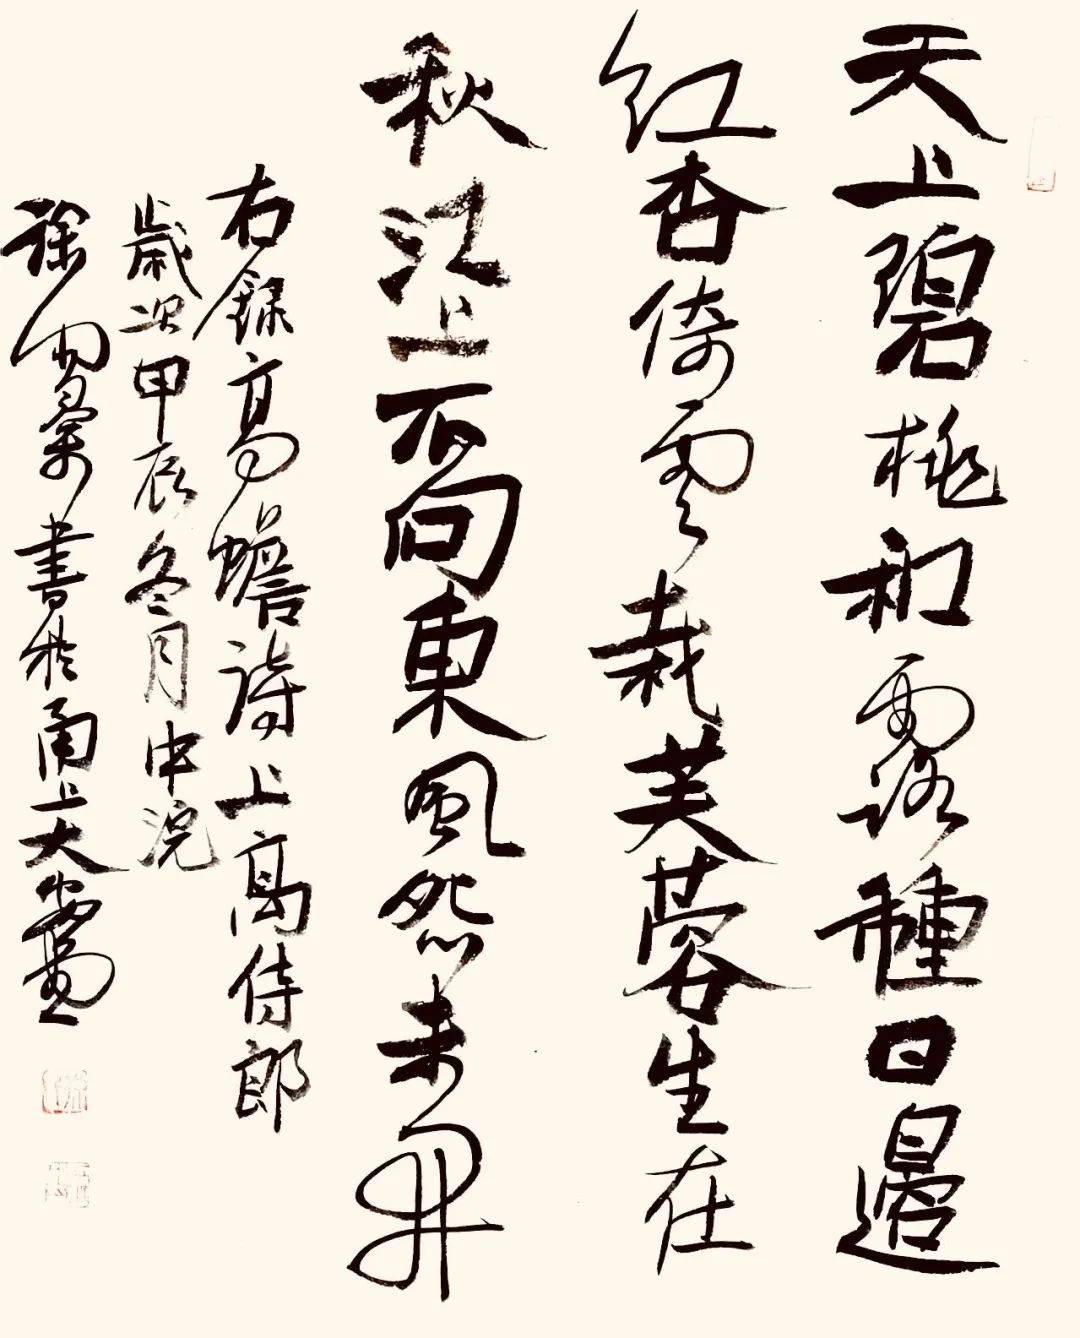 天上碧桃和露種日邊
紅杏倚雲栽芙蓉生在
秋江上不向東風怨未開
右錄高蟾詩上高侍郎
歲次甲辰冬月中浣
書於甬上大